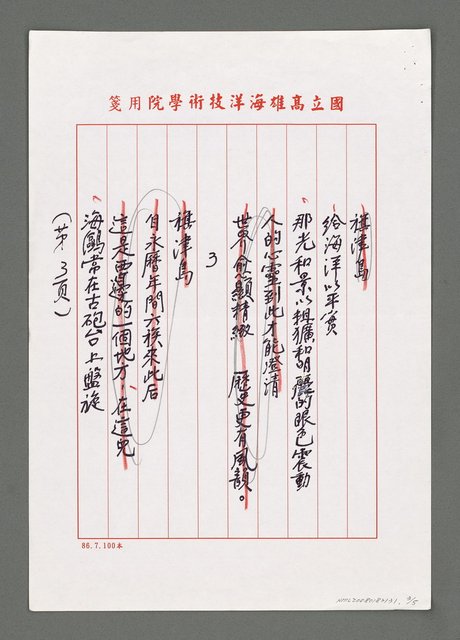 國立高雄海洋技術學院用箋
旗津島
給海洋以平實
那光和景以粗獷和明麗的眼色震動
人的心靈到此才能澄清
世界愈顯精緻 歷史更有風韻。
3
旗津島
自永曆年間六族來此后
這是西邊的一個地方,在這兒
海鷗常在古砲台上盤旋
(第3頁)
86.7.100本
3/5